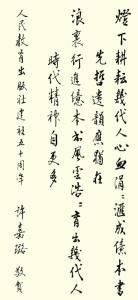 燈下耕耘幾代人心血涓〻匯成億本書
先哲遺韻應猶在
浪裏行進億本书風雲浩〻育出幾代人
時代精神自更多
人民教育出版社建社五十周年
許嘉璐 敬賀